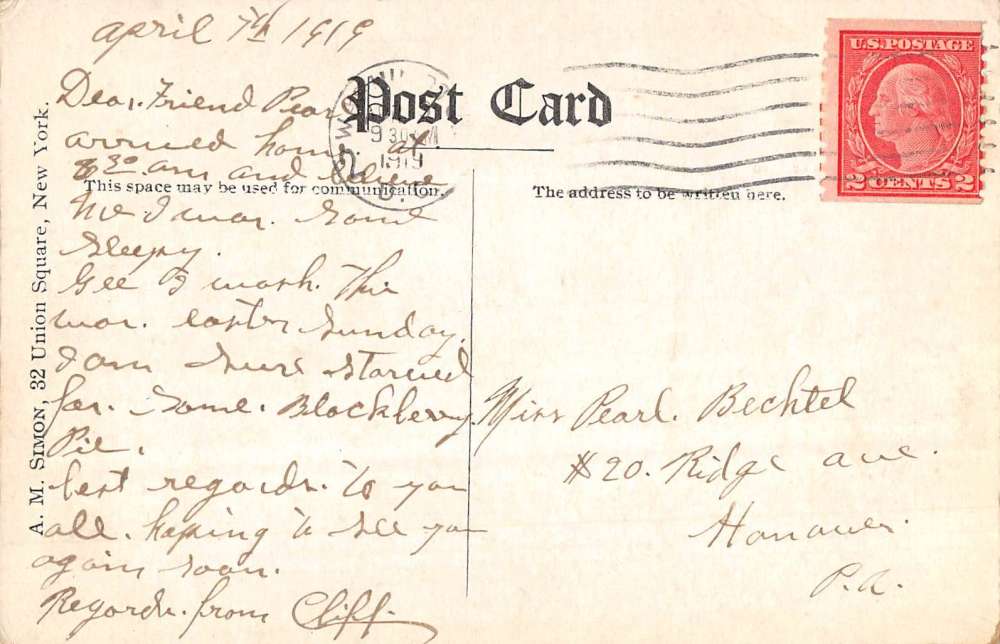 april 7th 1919
Dear. Friend Pearl
arrived home at
8 30. am and believe
me I was. some
sleepy.
Gee I wash. this
was. easter Sunday.
I am sure starved
for. some. Blackberry.
Pie.
best regards. to you
all. hoping to see you
again soon.
Regards. from Cliff.
Post Card
This space may be used for communication.
The address to be written here.
A. M. SIMON, 32 Union Square, New York.
9 30 AM
1919
U.S. POSTAGE
2 CENTS 2
Miss Pearl. Bechtel
#20. Ridge ave.
Hanover.
P.A.